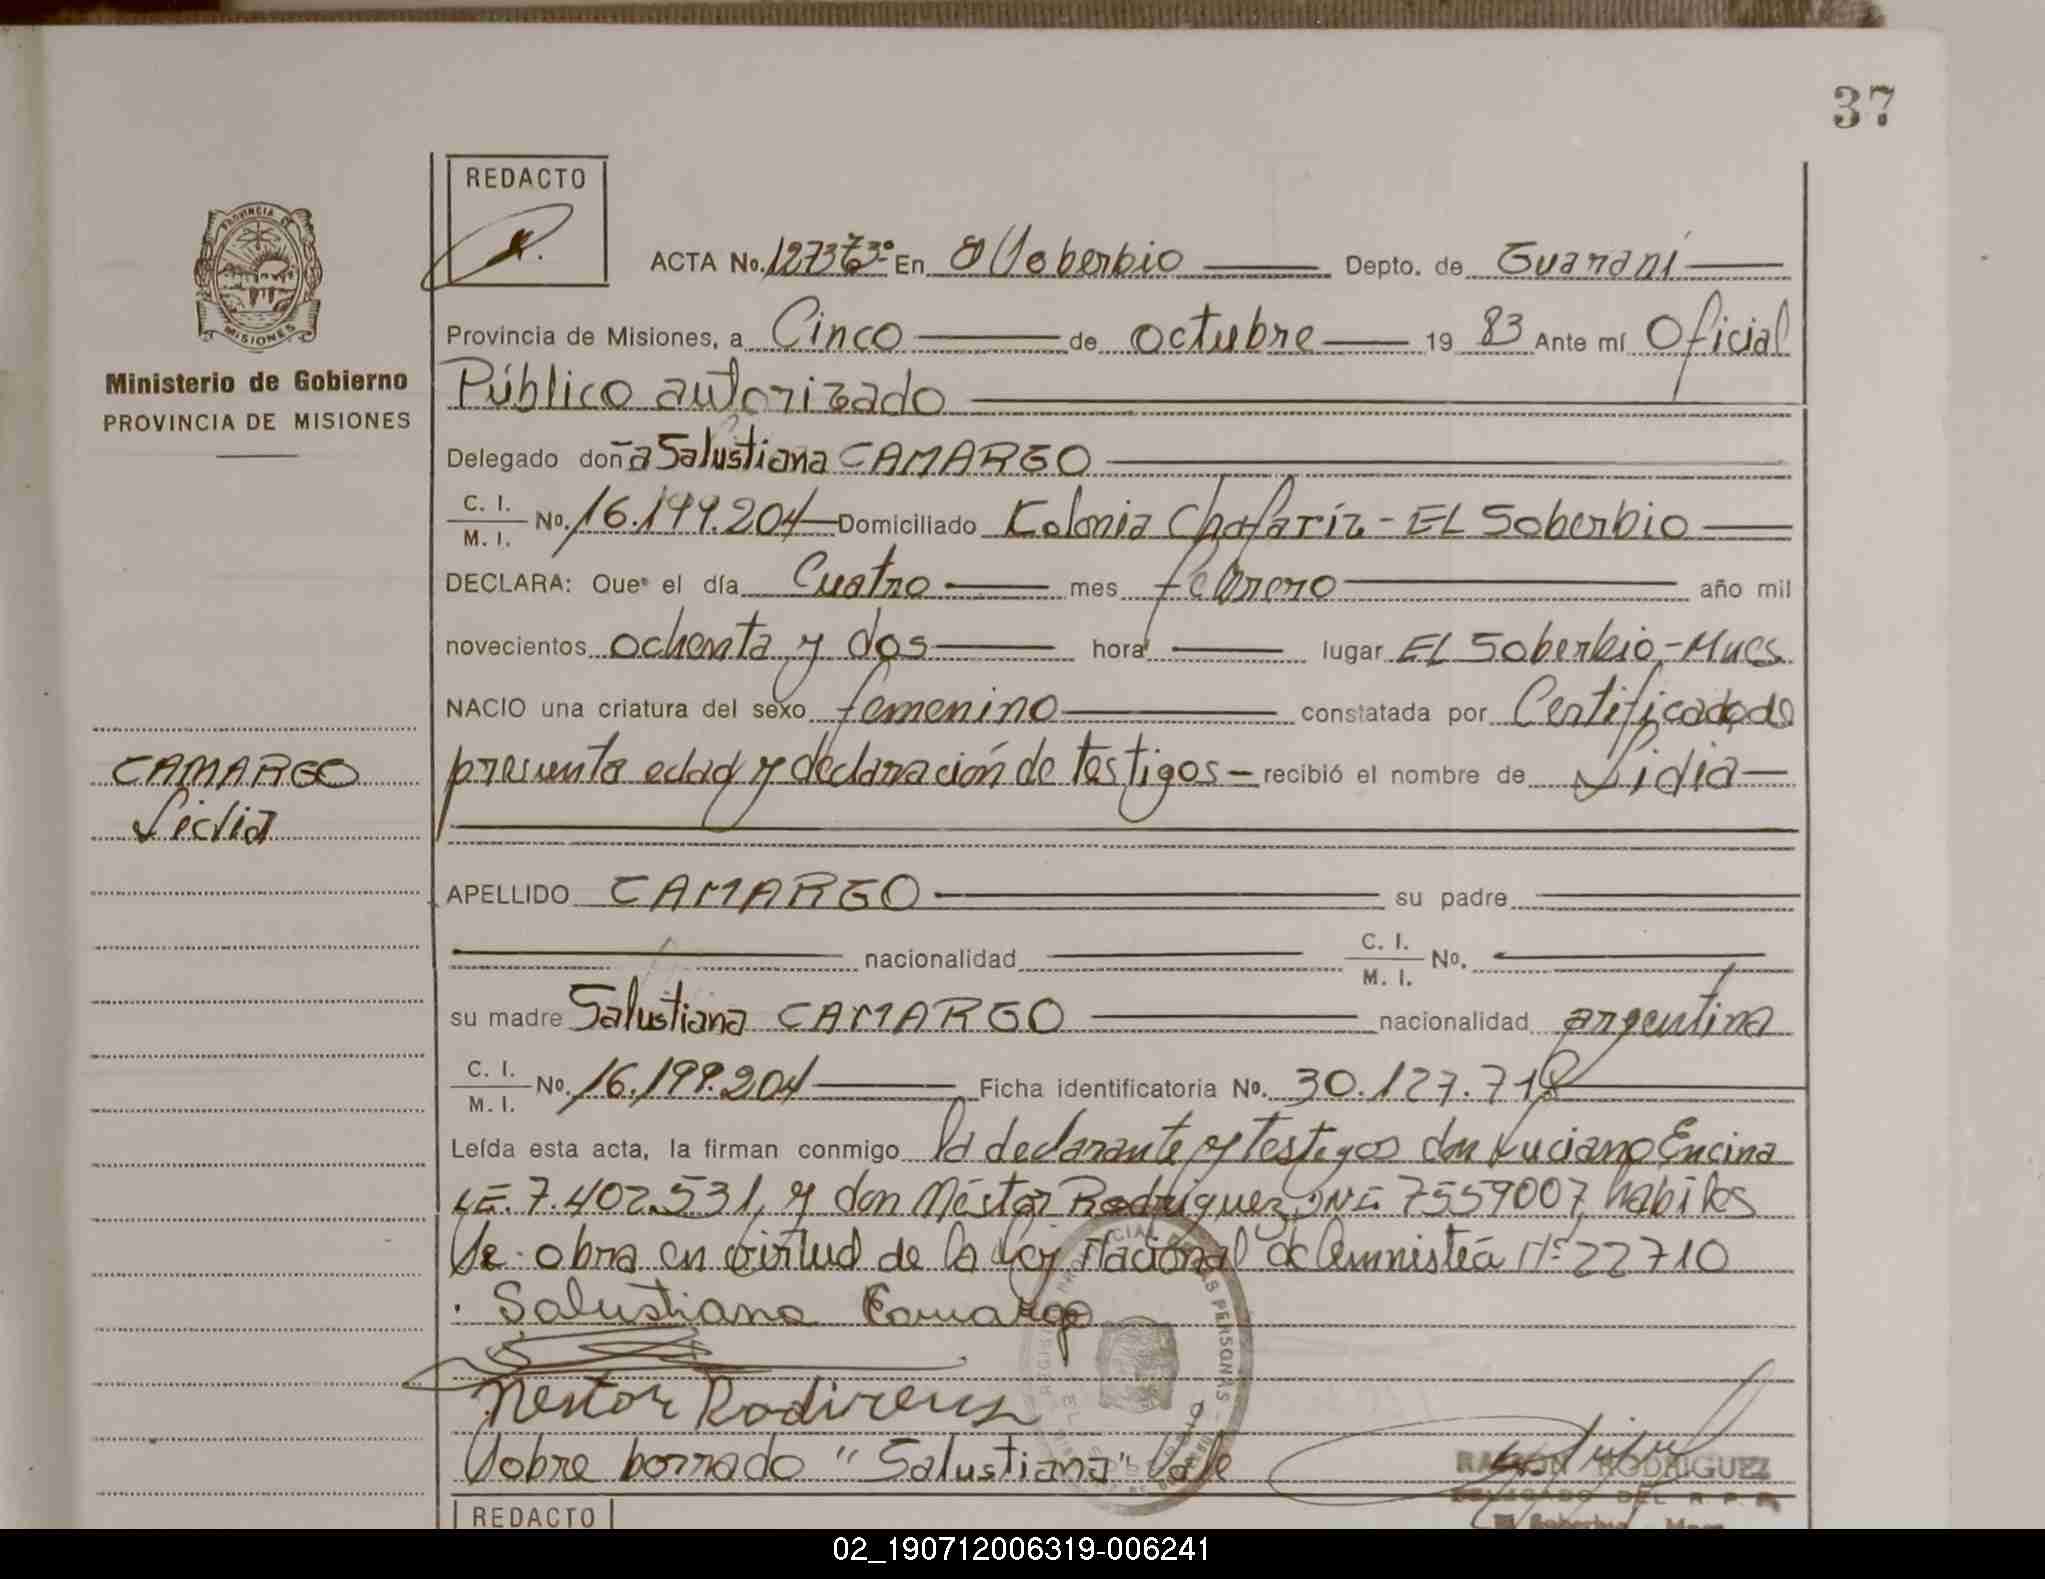 37
REDACTO
PROVINCIA DE
MISIONES
Ministerio de Gobierno
PROVINCIA DE MISIONES
ACTA No. En El Soberbio Depto. de Guaraní
Provincia de Misiones, a Cinco de octubre 19 83 Ante mí Oficial
Público autorizado
Delegado doña Salustiana CAMARGO
C. I.
M. I. No. 16.199.204 Domiciliado Colonia Chafariz - EL Soberbio
DECLARA: Que el día Cuatro mes febrero año mil
novecientos ochenta y dos hora lugar EL Soberbio-Mnes
NACIO una criatura del sexo femenino constatada por Certificado de
presunta edad y declaración de testigos - recibió el nombre de Lidia
CAMARGO
Lidia
APELLIDO CAMARGO su padre
nacionalidad C. I.
M. I. No.
su madre Salustiana CAMARGO nacionalidad argentina
C. I.
M. I. No. 16.199.204 Ficha identificatoria No. 30.127.718
Leída esta acta, la firman conmigo la declarante y testigos don Luciano Encina
LE. 7.402.531, y don Néstor Rodriguez DNI. 7559007, habiles
Se obra en virtud de la Ley Nacional de Amnistía Nº 22710
Salustiana Camargo
Nestor
Sobre borrado "Salustiana" Vale
RAMON RODRIGUEZ
DELEGADO DEL R. P. P.
El Soberbio - Mnes.
REDACTO
02_190712006319-006241